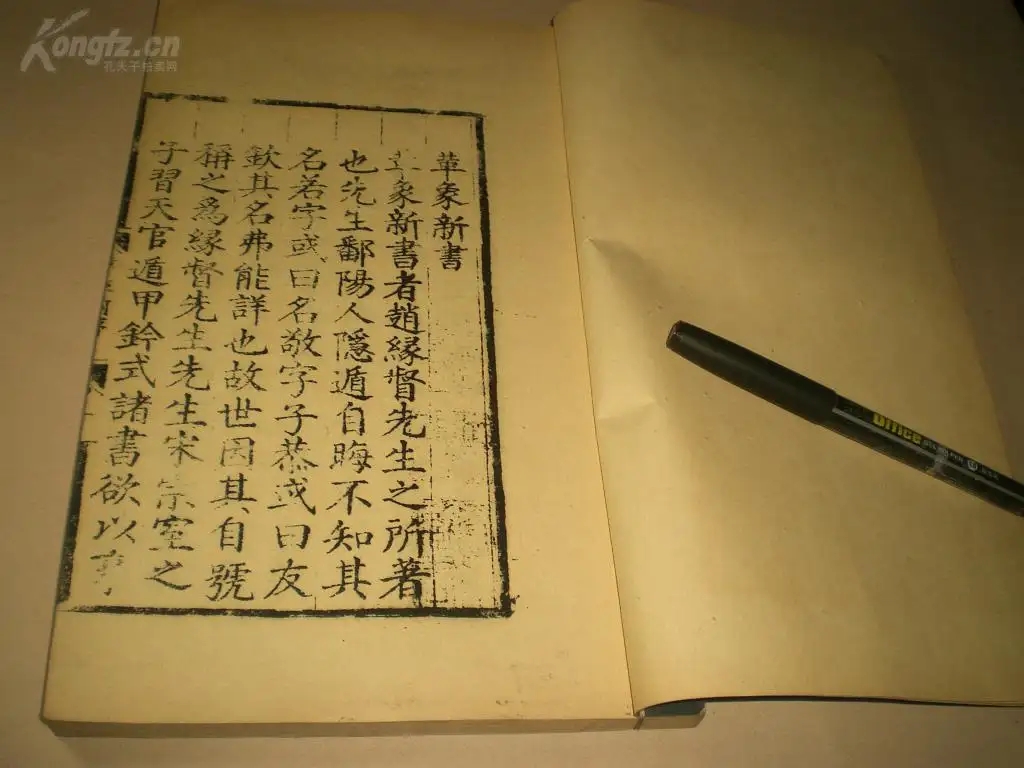 Kongfz.cn
孔夫子拍卖网
革象新書
革象新書者趙緣督先生之所著
也先生鄱陽人隱遁自晦不知其
名若字或曰名敬字子恭或曰友
欽其名弗能詳也故世因其自號
稱之爲緣督先生先生宋宗室之
子習天官遁甲鈐式諸書欲以
Office